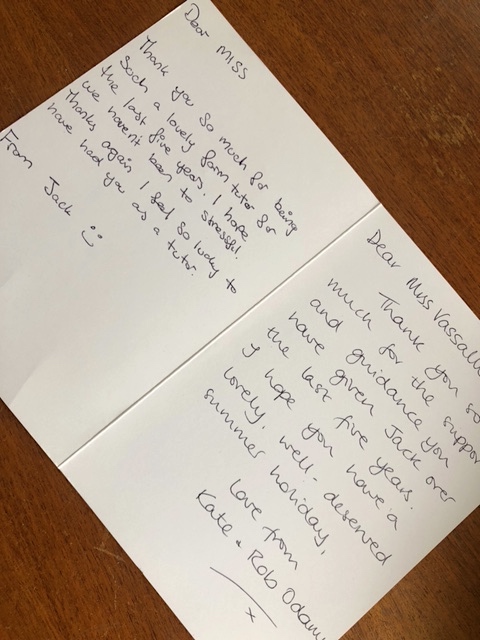 Dear MISS
Thank you so much for being
such a lovely form tutor for
the last five years. I hope
we haven't been to stressful.
Thanks again I feel so lucky to
have had you as a tutor.
From Jack :)
Dear Miss Vassall
Thank you so
much for the suppor
and guidance you
have given Jack over
the last five years.
I hope you have a
lovely, well-deserved
summer holiday,
love from
Kate + Rob
x